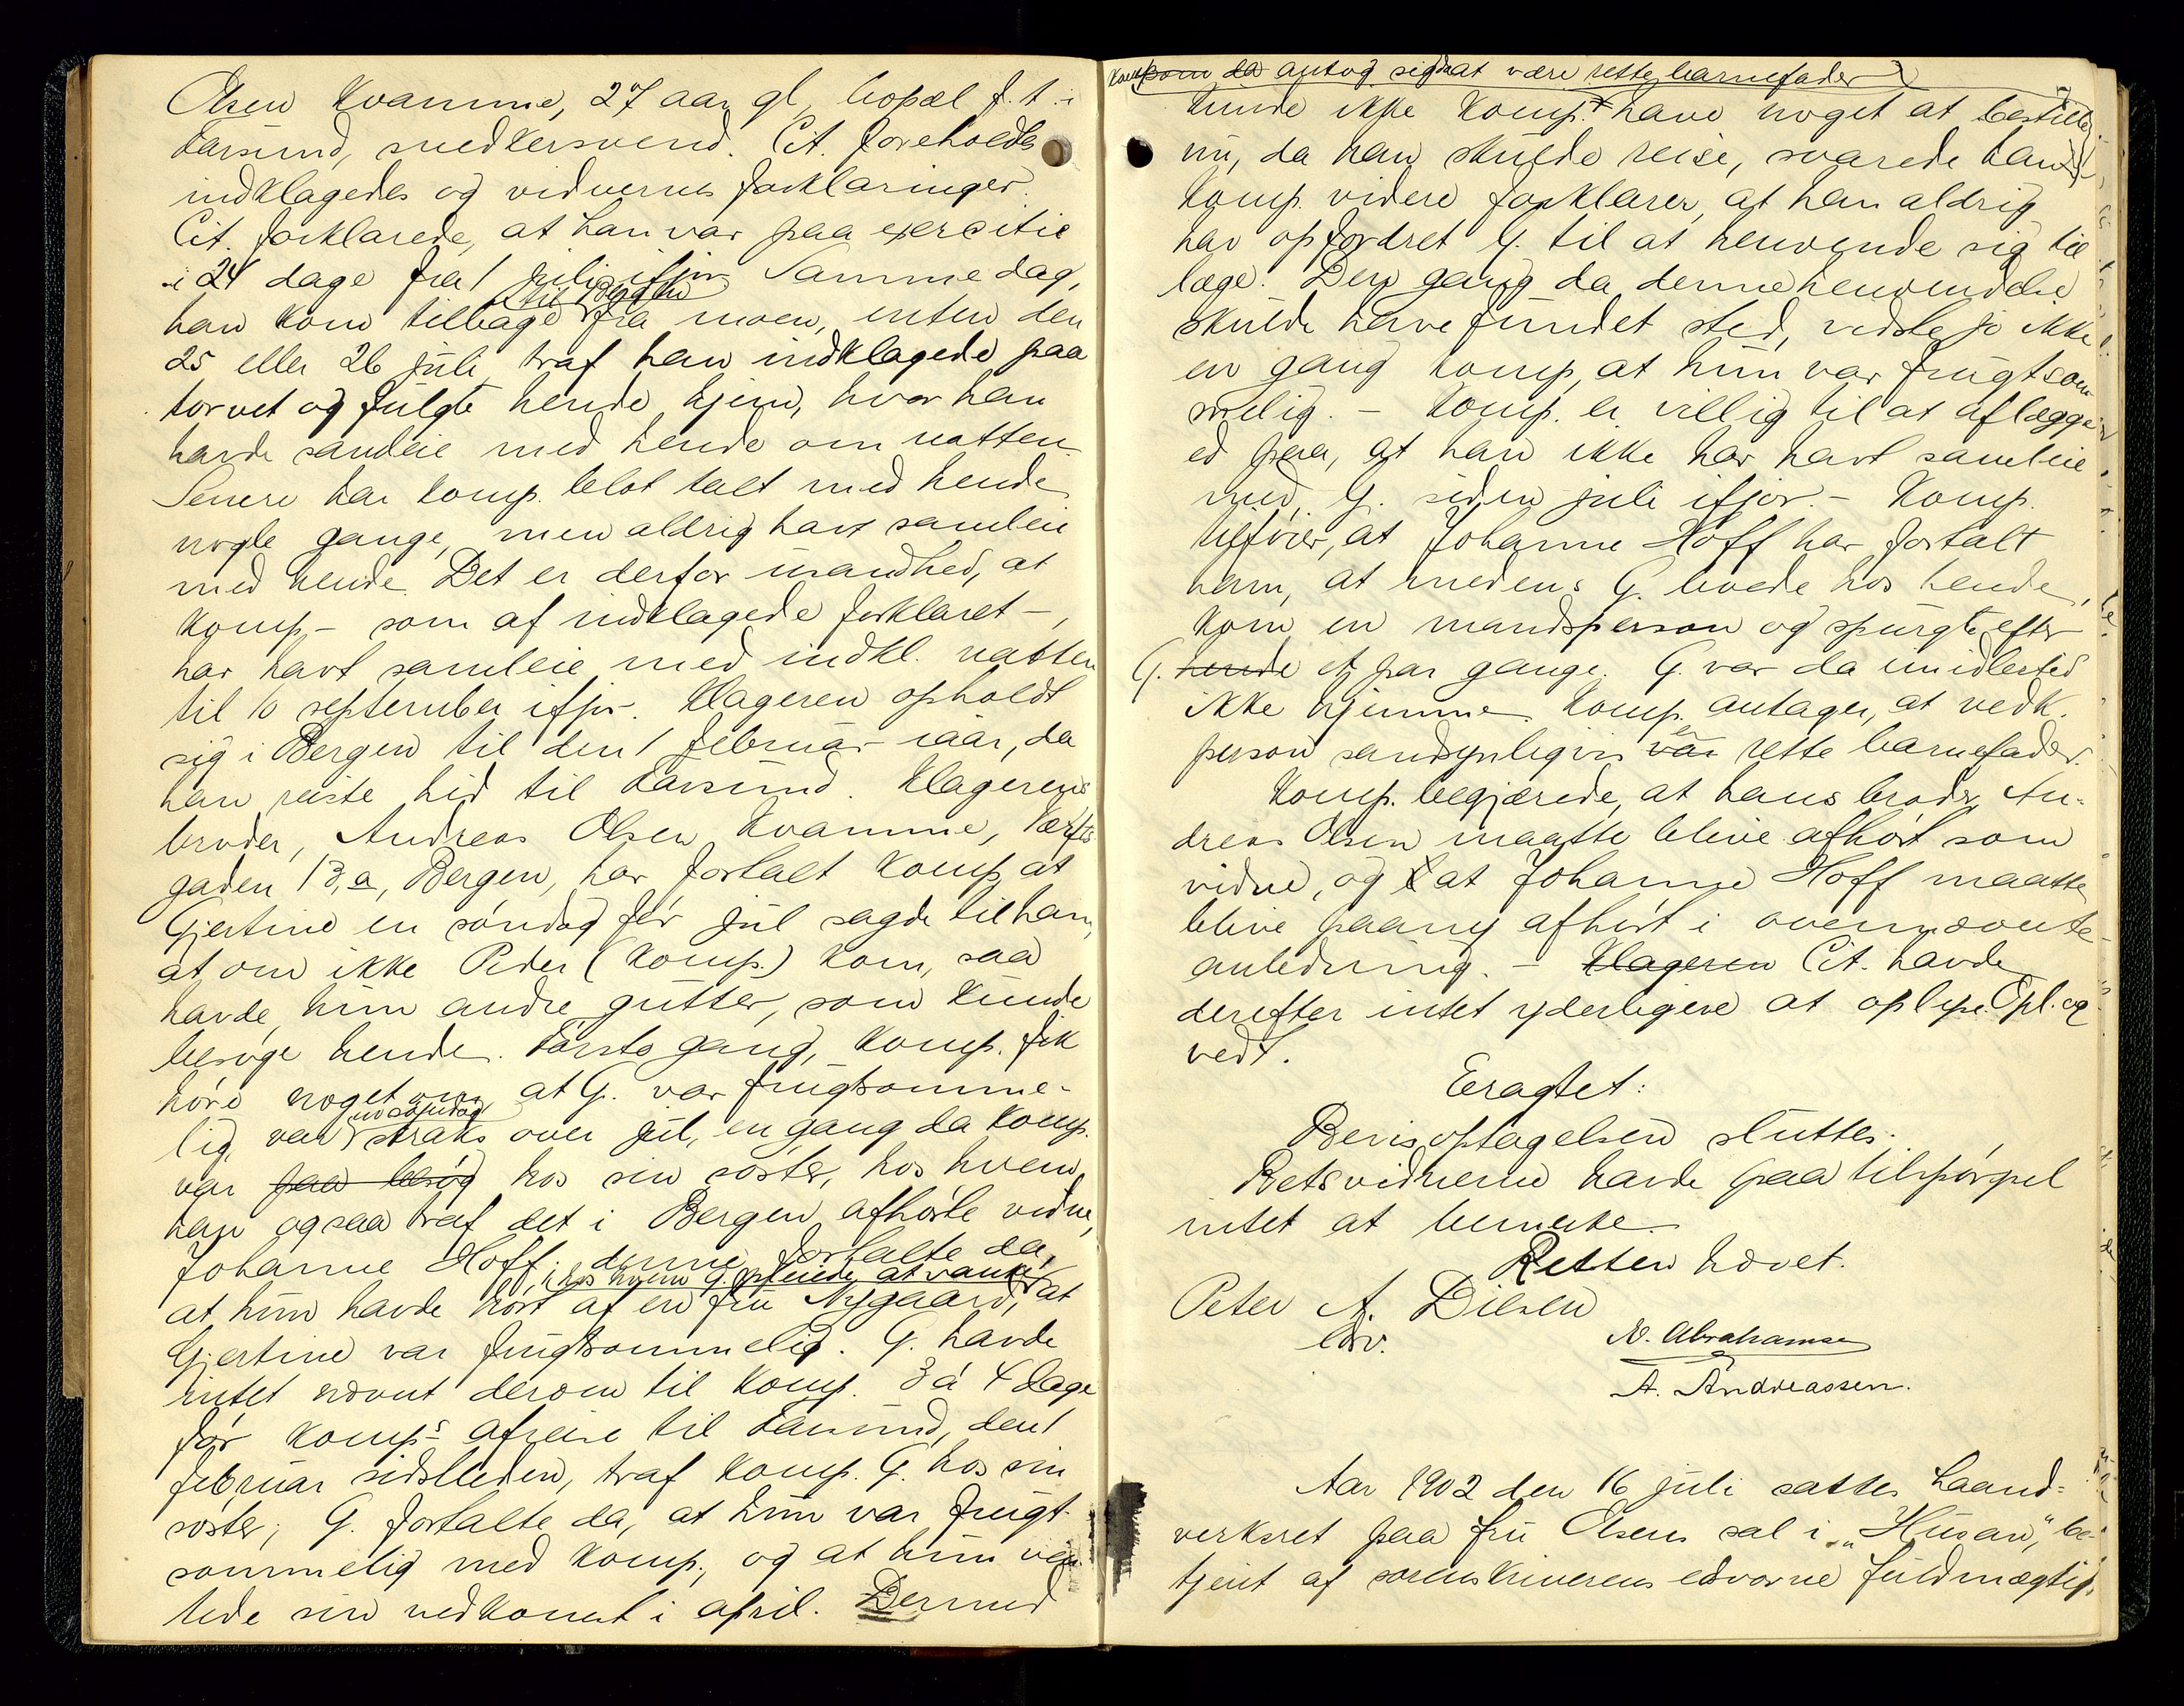 Olsen Kvamme, 27 aar gl, bopæl f. t. i
Farsund, snedkersvend. Cit. foreholdtes
indklagedes og vidnernes forklaringer.
Cit. forklarede, at han var paa exercitie
i 24 dage fra 1 juli ifjor. Samme dag,
til Bergen
han kom tilbage fra moen, enten den
25 eller 26 juli traf han indklagede paa
torvet og fulgte hende hjem, hvor han
havde samleie med hende om natten.
Senere har komp. blot talt med hende
nogle gange, men aldrig havt samleie
med hende. Det er derfor usandhed, at
komp. – som af indklagede forklaret –,
har havt samleie med indkl. natten
til 10 september ifjor. Klageren opholdt
sig i Bergen til den 1 februar iaar, da
han reiste hid til Farsund. Klagerens
broder, Andreas Olsen Kvamme,
gaden 13, a, Bergen, har fortalt komp, at
Gjertine en søndag før jul sagde til ham,
at om ikke Peder (komp.) kom, saa
havde hun andre gutter, som kunde
besøge hende. Første gang, komp. fik
høre noget om at G. var frugtsomme-
en søndag
lig, var straks over jul, en gang da komp.
var paa besøg hos sin søster, hos hvem
han ogsaa traf det i Bergen afhørte vidne,
Johanne Hoff; denne fortalte da,
hos hvem G. pleiede at vanke
at hun havde hørt af en fru Nygaard, at
Gjertine var frugtsommelig. G. havde
intet nævnt derom til komp. 3 á 4 dage
før komps afreise til Farsund, den 1
februar sidstleden, traf komp. G. hos sin
søster; G. fortalte da, at hun var frugt-
sommelig med komp., og at hun ven-
tede sin nedkomst i april. Dermed
komp som da antog sig at være rette barnefader
kunde ikke komp. have noget at bestille
nu, da han skulde reise, svarede han.
Komp. videre forklarer, at han aldrig
har opfordret G. til at henvende sig til
læge. Den gang da denne henvendelse
skulde have fundet sted, vidste jo ikke
en gang komp, at hun var frugtsom-
melig. – Komp. er villig til at aflægge
ed paa, at han ikke har havt samleie
med G. siden juli ifjor. – Komp.
tilføier, at Johanne Hoff har fortalt
ham, at medens G. boede hos hende,
kom en mandsperson og spurgte efter
G. hende et par gange. G. var da imidlertid
ikke hjemme. Komp. antager, at vedk.
er
person sandsynligvis var rette barnefader.
Komp. begjærede, at hans broder, An-
dreas Olsen maatte blive afhørt som
vidne, og at Johanne Hoff maatte
blive paany afhørt i ovennævnte
anledning. – Klageren Cit. havde
derefter intet yderligere at oplyse. Opl. og
vedt.
Eragtet:
Bevisoptagelsen sluttes.
Retsvidnerne havde paa tilspørgsel
intet at bemerke.
Retten hævet.
Peter A. Dielen
edsv.
N. Abrahamsen
A. Andreassen.
Aar 1902 den 16 juli sattes Laand-
verksret paa fru Olsens sal i "Husan", be-
tjent af sorenskriverens edsvorne fuldmægtig,